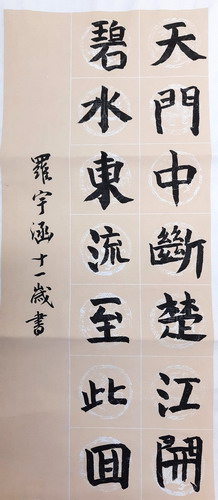 天門中斷楚江開
碧水東流至此回
羅宇涵十一歲書